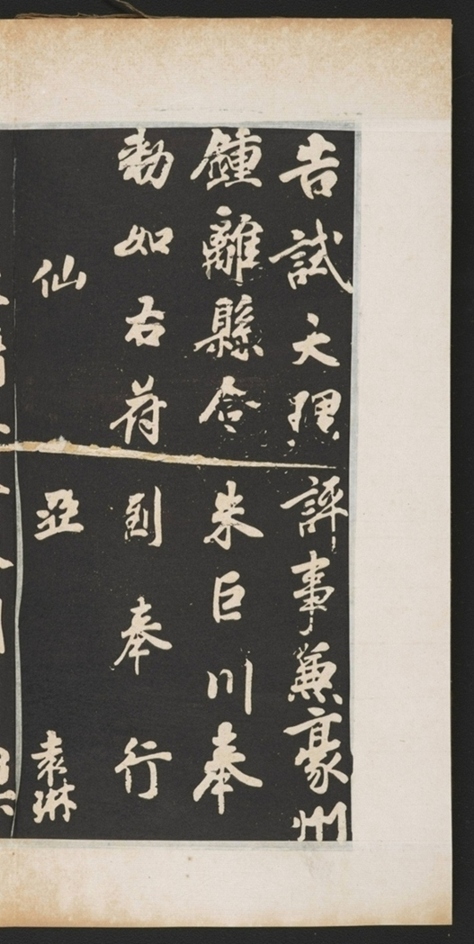 告試大理評事兼豪州
鍾離縣令朱巨川奉
勑如右符到奉行
仙亞袁琳